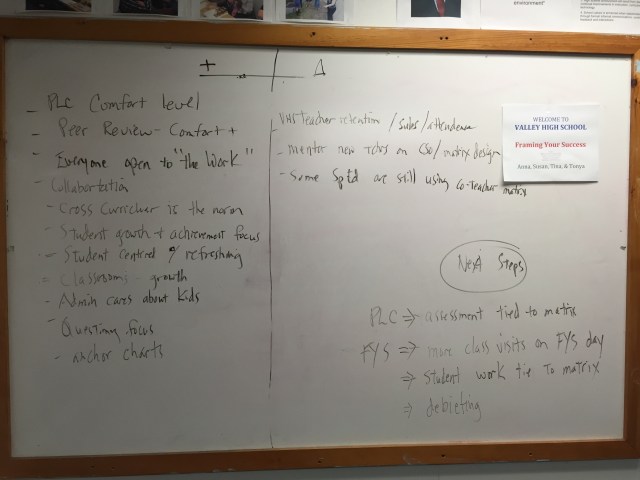 + Δ
- PLC Comfort level
- Peer Review - Comfort +
- Everyone open to "the Work"
- Collabortation
- Cross Curricular is the norm
- Student growth + achievement focus
- Student centred & refreshing
- Classrooms - growth
- Admin cares about kids
- Questiong focus
- anchor charts
- VHS teacher retention / subs / attendance
- mentor new Tchrs on CSO / matrix design
- Some Sped are still using co-teacher matrix
WELCOME TO
VALLEY HIGH SCHOOL
Framing Your Success
Anna, Susan, Tina, & Tanya
Next Steps
PLC ⇒ assessment tied to matrix
FYS ⇒ more class visits on FYS day
⇒ Student work tie to matrix
⇒ debriefing
environment"